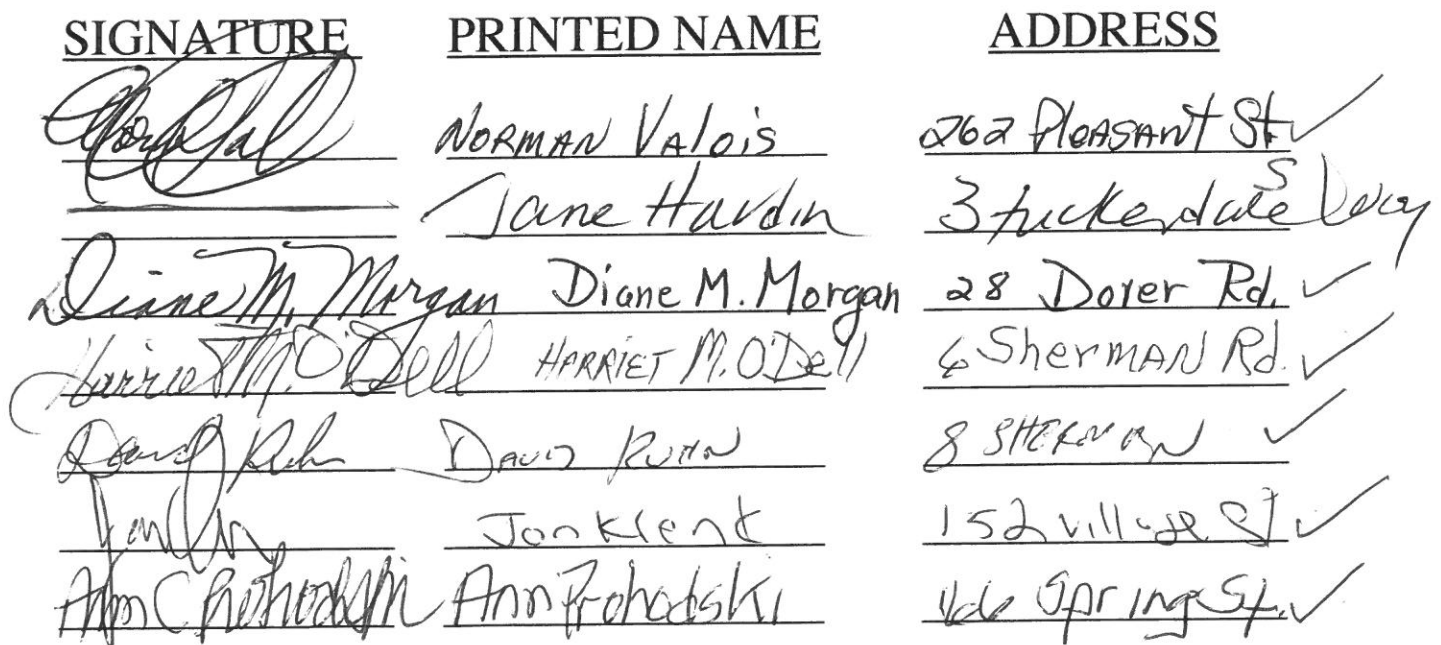 SIGNATURE PRINTED NAME ADDRESS
NORMAN VAlois 262 PleASANT St.
Jane Hardin 3
Diane M. Morgan Diane M. Morgan 28 Dover Rd.
Harriet M. O'Dell HARRIET M. O'Dell 6 SherMAN Rd.
David DAVID 8 SHERMAN
Jon Klent 152 village St
Ann C Prohodski Ann Prohodski Spring St.